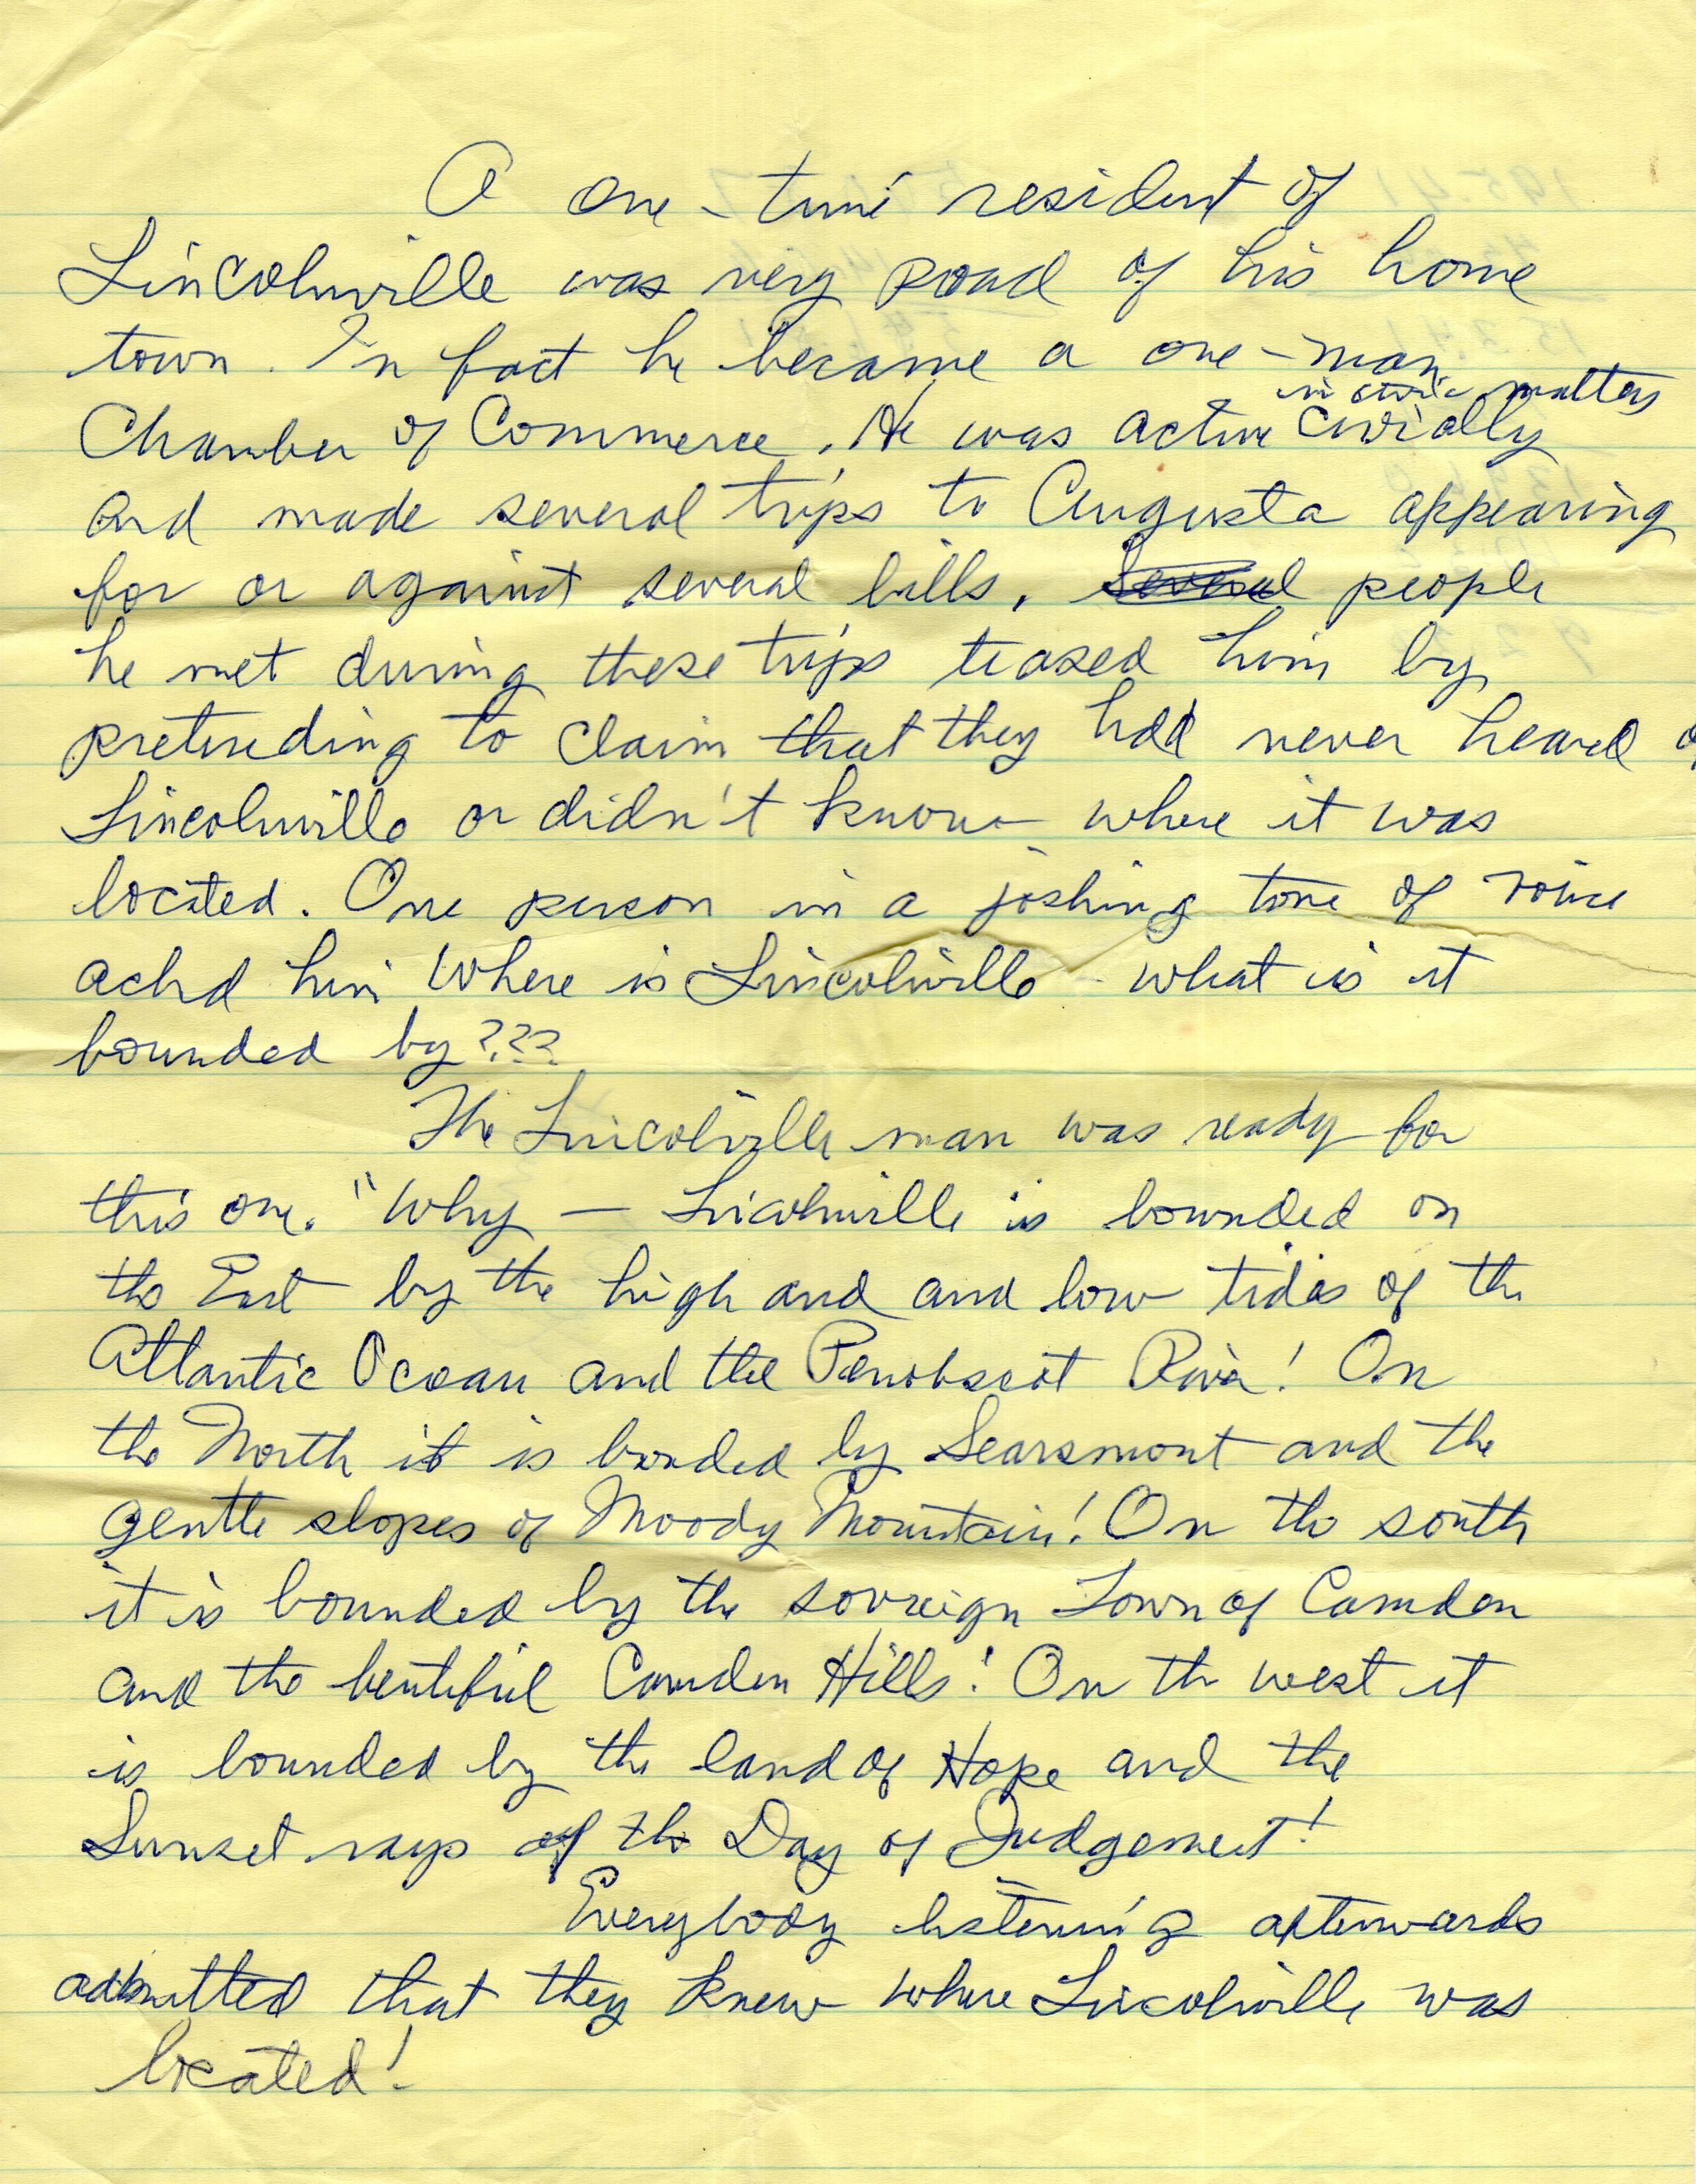 A one-time resident of
Lincolnville was very proud of his home
town. In fact he became a one-man
in civic matters
Chamber of Commerce. He was active civially
and made several trips to Augusta appearing
for or against several bills. Several people
he met during these trips teased him by
pretending to claim that they had never heard o
Lincolnville or didn't know where it was
located. One person in a joshing tone of voice
asked him Where is Lincolnville - what is it
bounded by???
The Lincolnville man was ready for
this one. "Why — Lincolnville is bounded on
the East by the high and and low tides of the
Atlantic Ocean and the Penobscot River! On
the North it is bonded by Searsmont and the
gentle slopes of Moody Mountain! On the south
it is bounded by the sovreign Town of Camden
and the beutiful Camden Hills! On the west it
is bounded by the land of Hope and the
Sunset rays of the Day of Judgement!
Everybody listening afterwards
admitted that they knew where Lincolnville was
located!